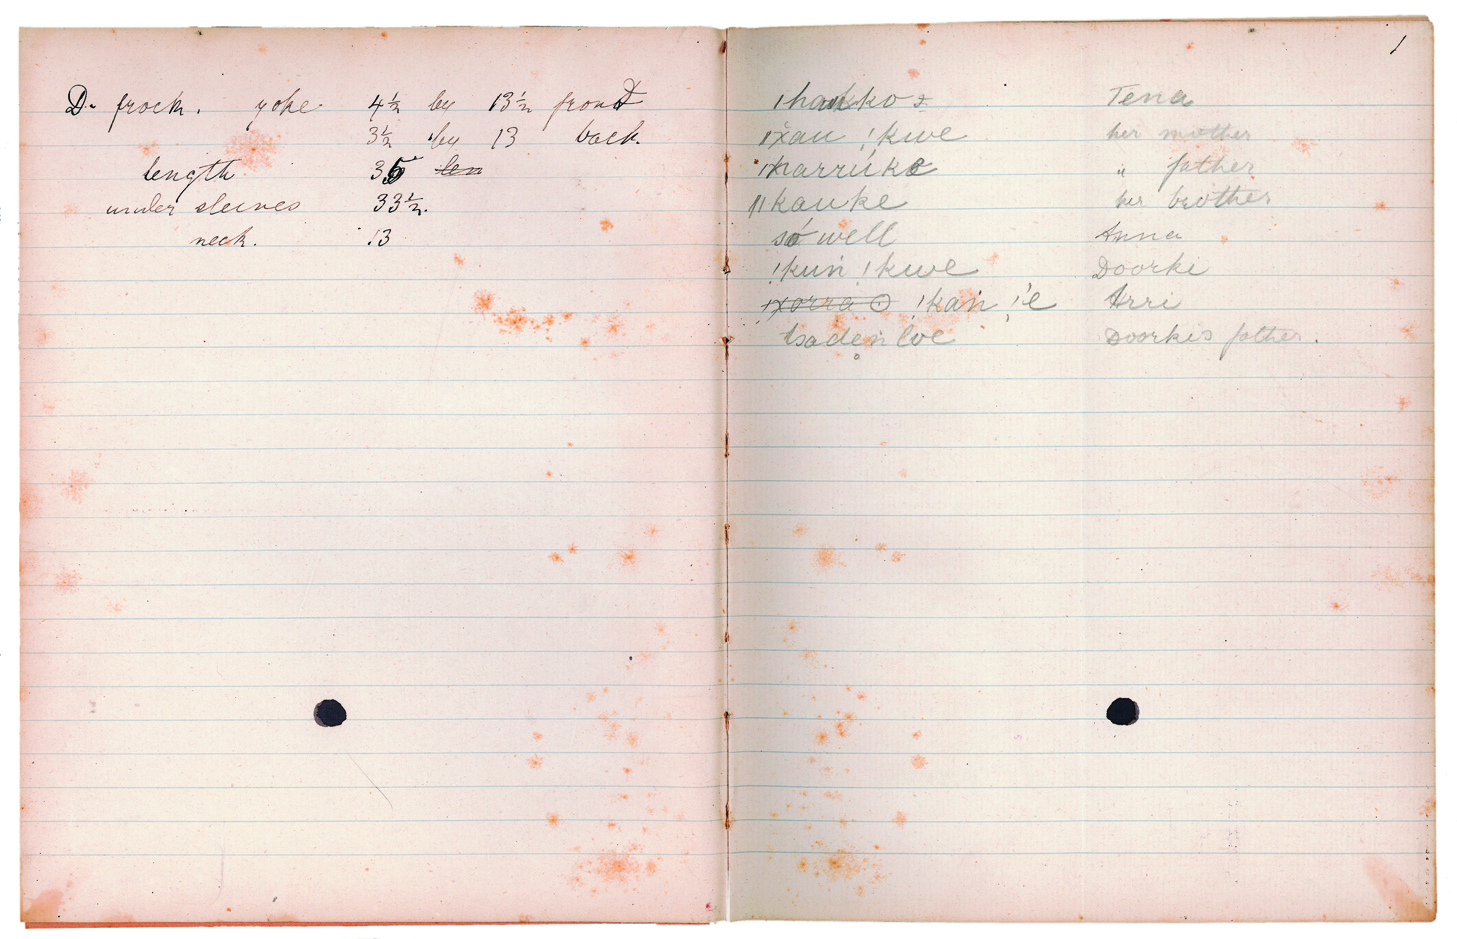 D. frock. yoke 4½ by 13½ front
3½ by 13 back.
length 35 len
under sleeves 33½.
neck. 13
1
Tena
ǀxau !kwe her mother
" father
ǁkauke her brother
só well Anna
!kuṅ !kwe Doorki
ǀxorra ʘ !kaṅ Arri
tsadeṅ Doorkis father.